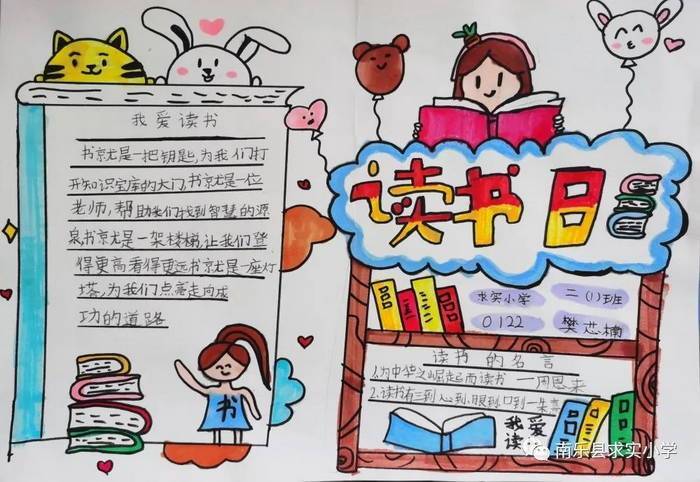 我爱读书
书就是一把钥匙,为我们打
开知识宝库的大门,书就是一位
老师,帮助我们找到智慧的源
泉书就是一架楼梯,让我们登
得更高看得更远书就是一座灯
塔,为我们点亮走向成
功的道路
书
读书日
求实小学
二(1)班
0122
樊芯楠
读书的名言
1.为中华之崛起而读书 一周恩来
2.读书有三到心到,眼到,口到一朱熹
我爱
读书
南乐县求实小学